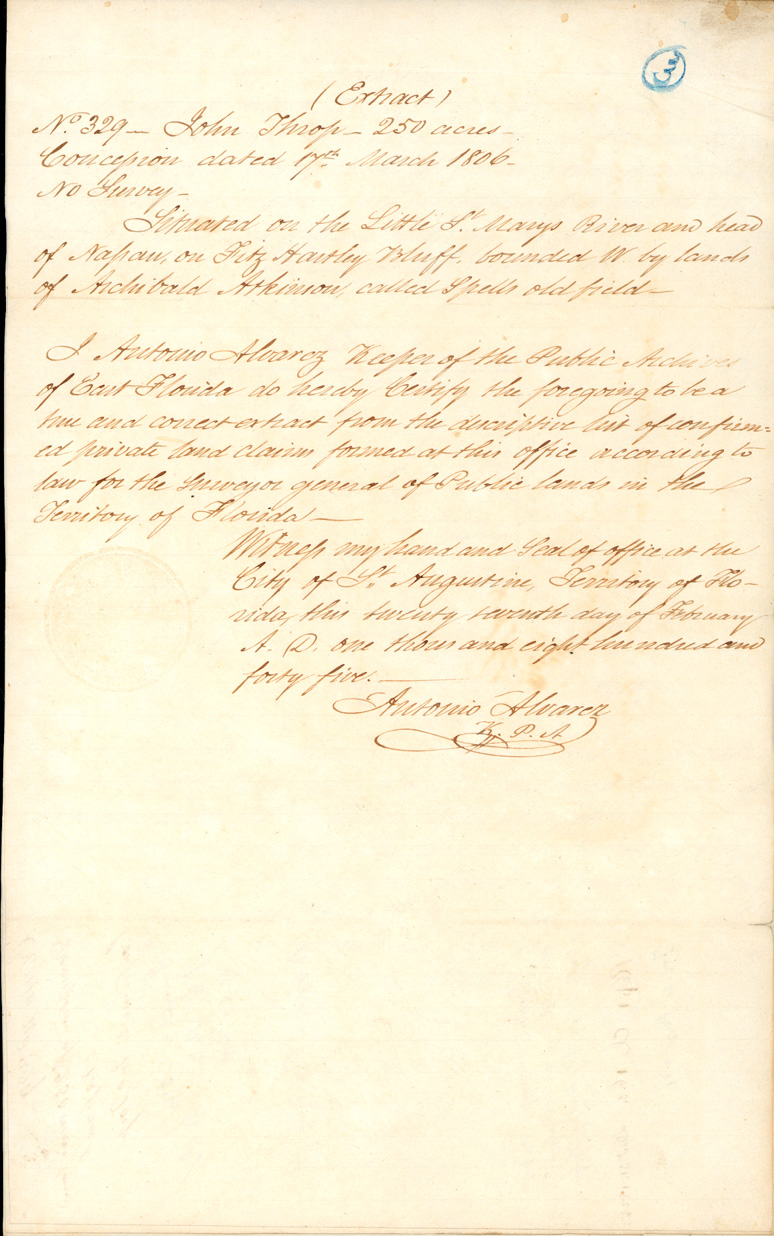 3
(Extract)
No. 329 — John Throp — 250 acres —
Concession dated 17th March 1806 —
No Survey —
Situated on the Little St. Marys River and head
of Nassau, on Fitz Hartley Bluff, bounded W by lands
of Archibald Atkinson, called Spells old field —
I Antonio Alvarez Keeper of the Public Archives
of East Florida do hereby Certify the foregoing to be a
true and correct extract from the descriptive list of confirm=
ed private land claims formed at this office according to
law for the Surveyor general of Public lands in the
Territory of Florida —
Witness my hand and Seal of office at the
City of St. Augustine, Territory of Flo-
rida, this twenty seventh day of February
A. D. one thousand eight hundred and
forty five. —
Antonio Alvarez
K. P. A